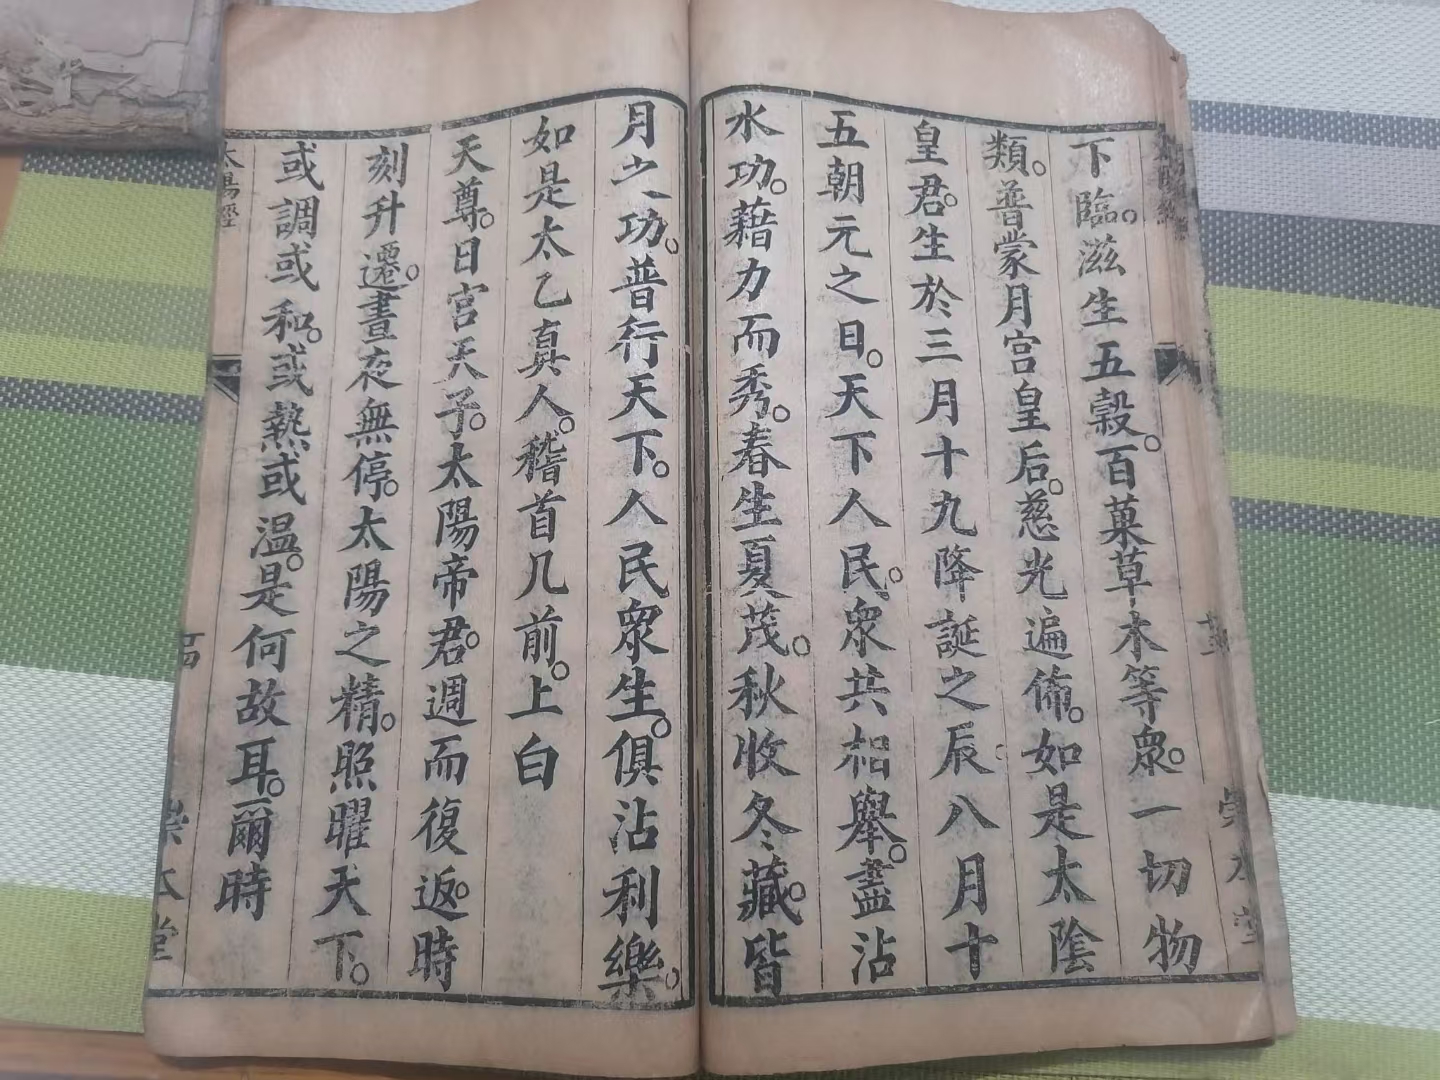 下臨。滋生五穀。百菓草木等衆。一切物
類。普蒙月宫皇后。慈光遍佈。如是太陰
皇君。生於三月十九降誕之辰。八月十
五朝元之日。天下人民。衆共相舉。盡沾
水功。藉力而秀。春生夏茂。秋收冬藏。皆
月之功。普行天下。人民衆生。俱沾利樂。
如是太乙真人。稽首几前。上白
天尊。日宮天子。太陽帝君。週而復返。時
刻升遷。晝夜無停。太陽之精。照曜天下。
或調或和。或熱或温。是何故耳。爾時
太陽經
崇本堂